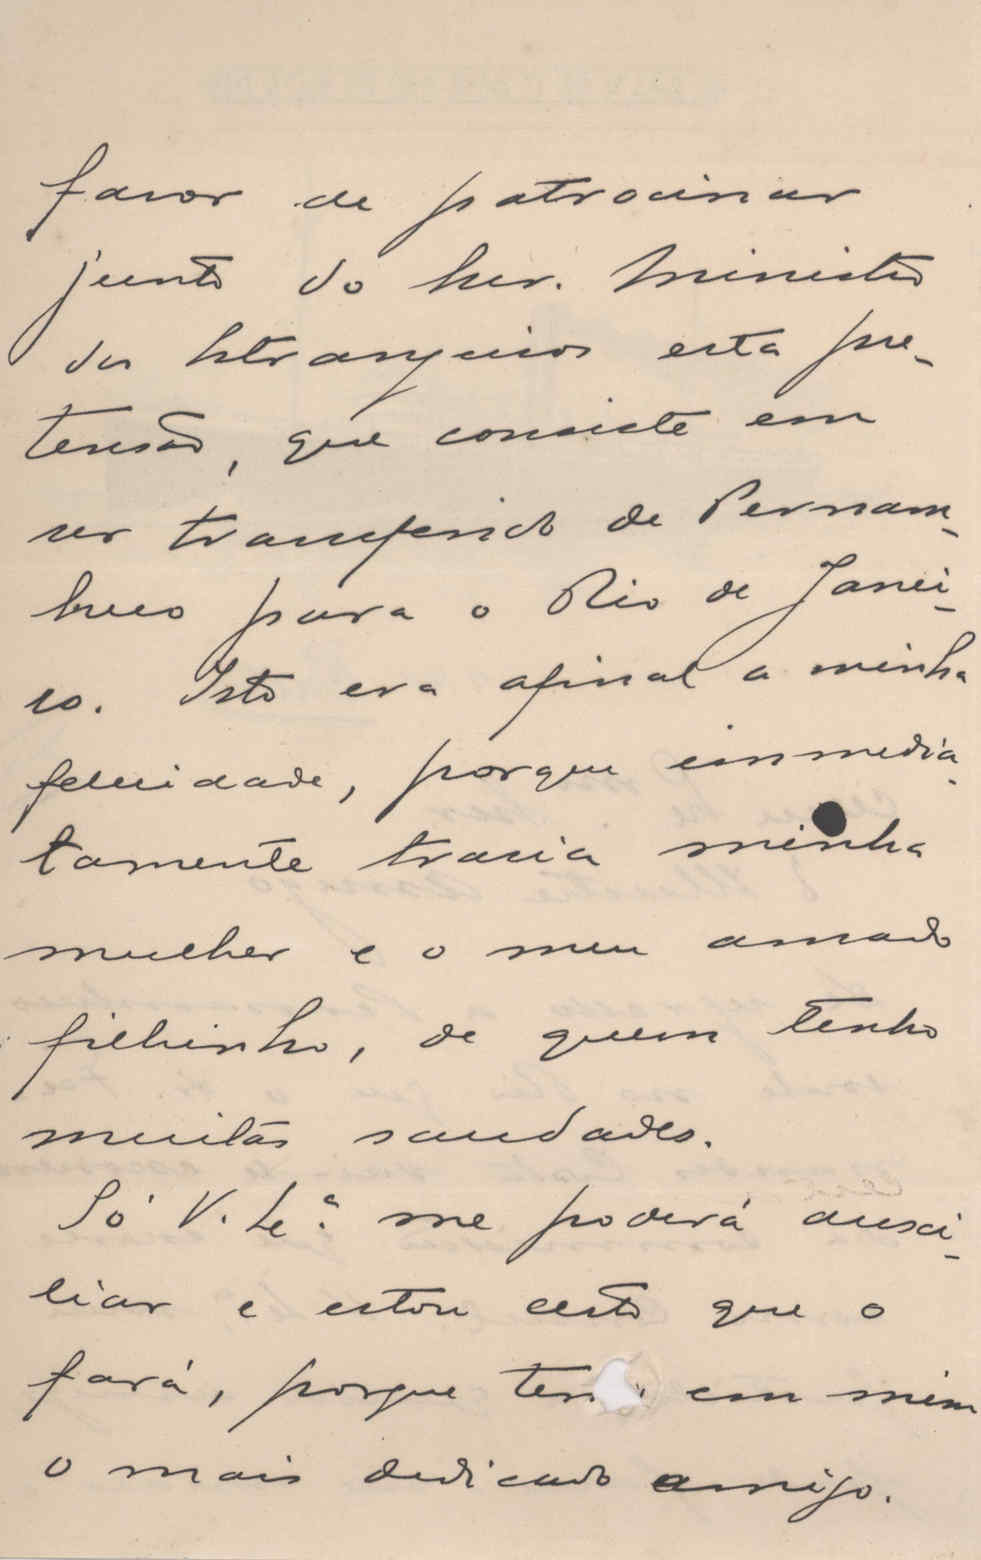 favor de patrocinar
junto do Snr. Ministro
dos Estrangeiros esta pre-
tensão, que consiste em
ser transferido de Pernam-
buco para o Rio de Janei-
ro. Isto era afinal a minha
felicidade, porque immedia-
tamente trazia minha
mulher e o meu amado
filhinho, de quem tenho
muitas saudades.
Só V. Exª. me poderá auxi-
liar e estou certo que o
fará, porque em mim
o mais dedicado amigo.